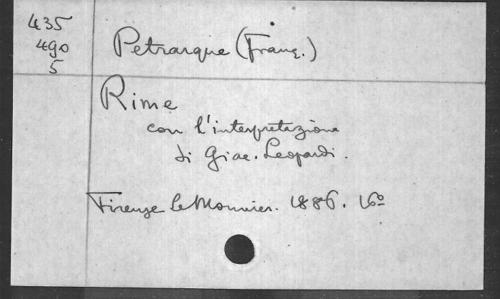 435
490
5
Petrarque (Franç.)
Rime
con l'interpretazione
di Giac. Leopardi.
Firenze Le Monnier. 1886. 16º